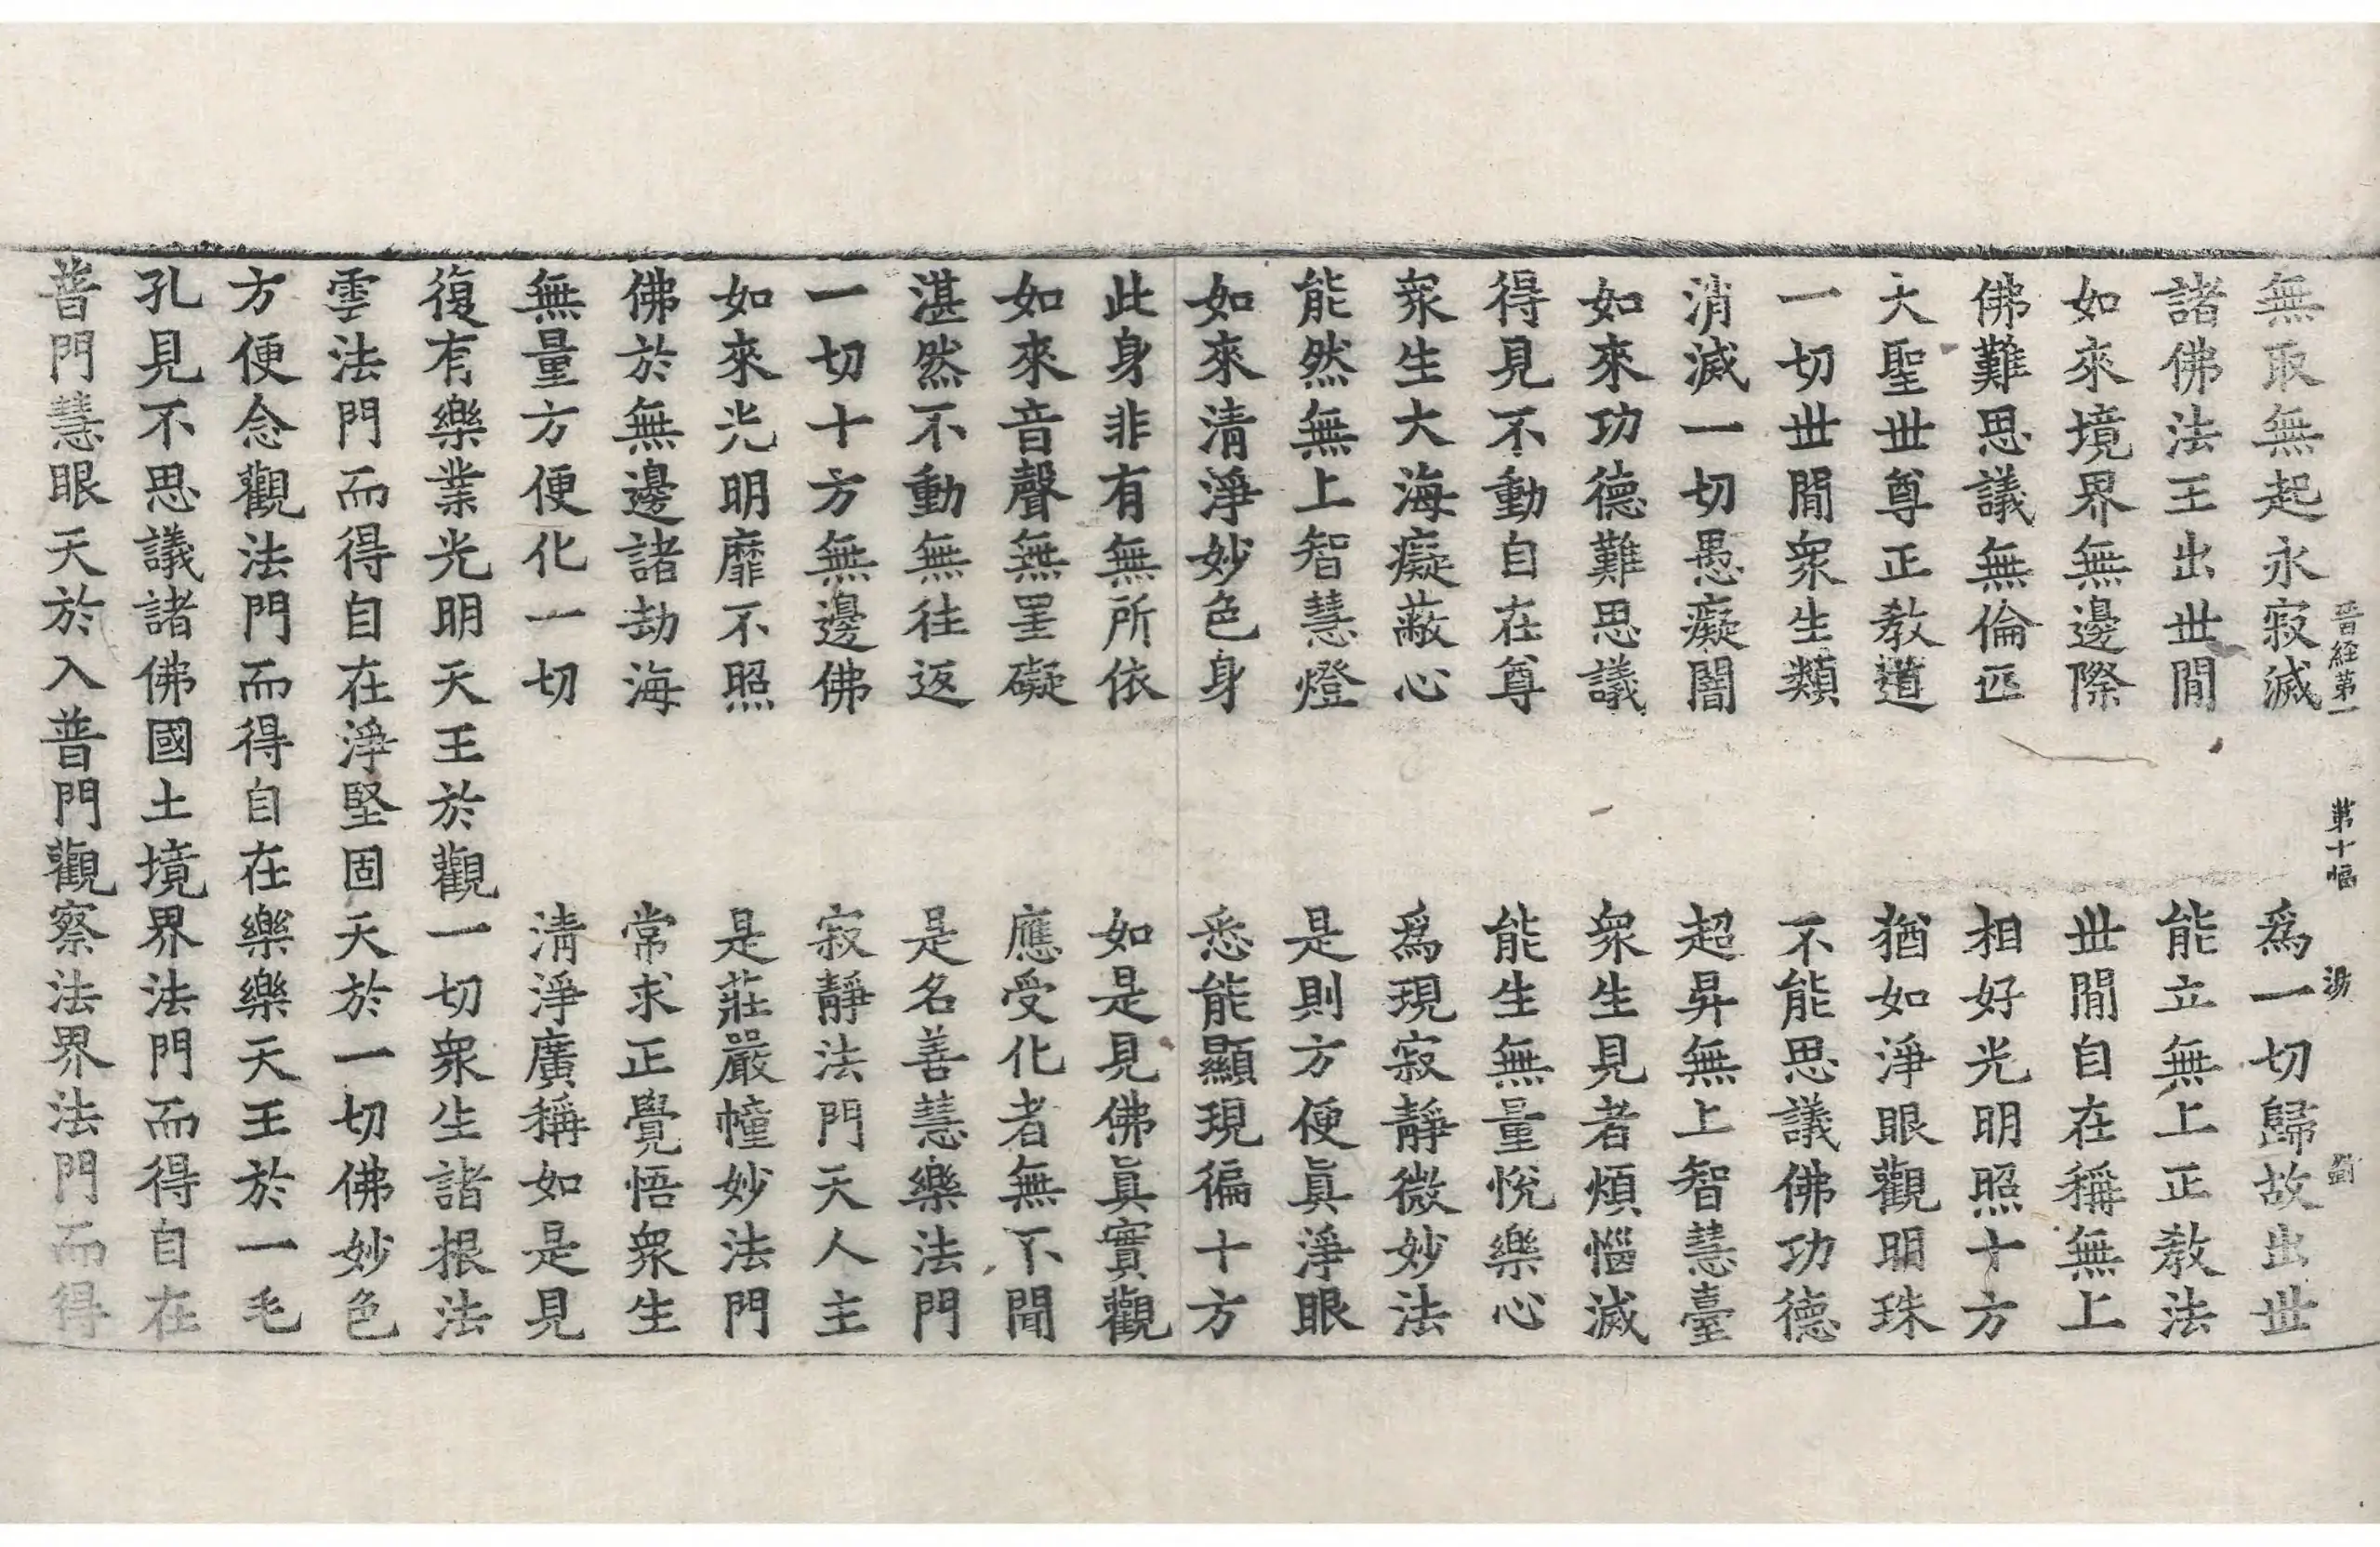 晋經第一 第十幅 湯 劉
無取無起永寂滅 爲一切歸故出世
諸佛法王出世閒 能立無上正教法
如來境界無邊際 世閒自在稱無上
佛難思議無倫匹 相好光明照十方
大聖世尊正教道 猶如淨眼觀明珠
一切世閒衆生類 不能思議佛功德
消滅一切愚癡闇 超昇無上智慧臺
如來功德難思議 衆生見者煩惱滅
得見不動自在尊 能生無量悅樂心
衆生大海癡蔽心 爲現寂靜微妙法
能然無上智慧燈 是則方便眞淨眼
如來淸淨妙色身 悉能顯現徧十方
此身非有無所依 如是見佛眞實觀
如來音聲無罣礙 應受化者無不聞
湛然不動無往返 是名善慧樂法門
一切十方無邊佛 寂靜法門天人主
如來光明靡不照 是莊嚴幢妙法門
佛於無邊諸劫海 常求正覺悟衆生
無量方便化一切 淸淨廣稱如是見
復有樂業光明天王於觀一切衆生諸根法
雲法門而得自在淨堅固天於一切佛妙色
方便念觀法門而得自在樂樂天王於一毛
孔見不思議諸佛國土境界法門而得自在
普門慧眼天於入普門觀察法界法門而得